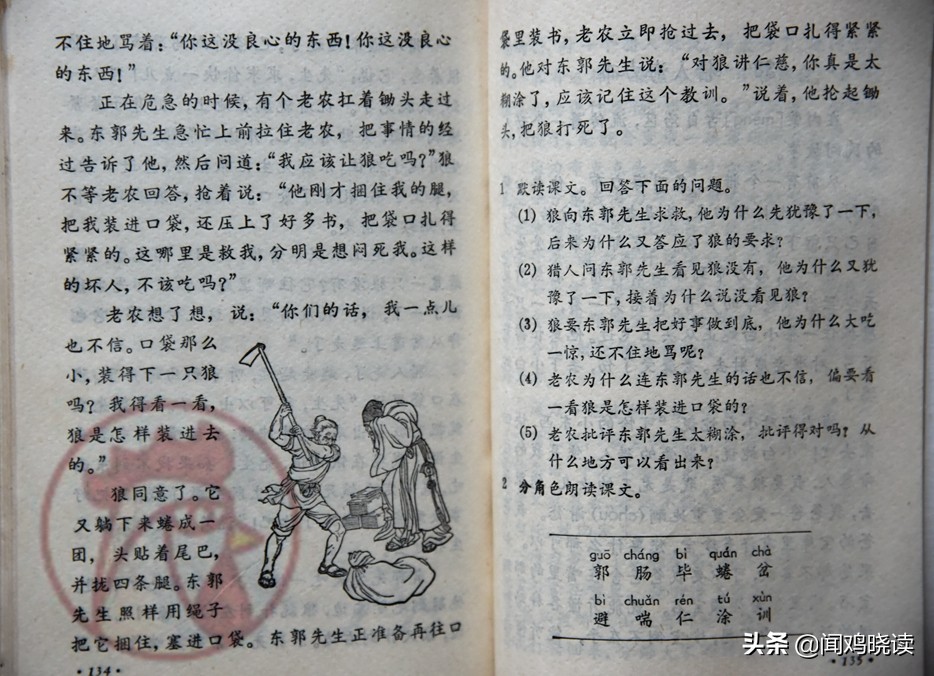 不住地骂着：“你这没良心的东西！你这没良心
的东西！”
正在危急的时候，有个老农扛着锄头走过
来。东郭先生急忙上前拉住老农，把事情的经
过告诉了他，然后问道：“我应该让狼吃吗？”狼
不等老农回答，抢着说：“他刚才捆住我的腿，
把我装进口袋，还压上了好多书，把袋口扎得
紧紧的。这哪里是救我，分明是想闷死我。这样
的坏人，不该吃吗？”
老农想了想，说：“你们的话，我一点儿
也不信。口袋那么
小，装得下一只狼
吗？我得看一看，
狼是怎样装进去
的。”
狼同意了。它
又躺下来蜷成一
团，头贴着尾巴，
并拢四条腿。东郭
先生照样用绳子
把它捆住，塞进口袋。东郭先生正准备再往口
·134·
袋里装书，老农立即抢过去，把袋口扎得紧紧
的。他对东郭先生说：“对狼讲仁慈，你真是太
糊涂了，应该记住这个教训。”说着，他抡起锄
头，把狼打死了。
1 默读课文。回答下面的问题。
(1) 狼向东郭先生求救，他为什么先犹豫了一下，
后来为什么又答应了狼的要求？
(2) 猎人问东郭先生看见狼没有，他为什么又犹
豫了一下，接着为什么说没看见狼？
(3) 狼要东郭先生把好事做到底，他为什么大吃
一惊，还不住地骂呢？
(4) 老农为什么连东郭先生的话也不信，偏要看
一看狼是怎样装进口袋的？
(5) 老农批评东郭先生太糊涂，批评得对吗？从
什么地方可以看出来？
2 分角色朗读课文。
guō cháng bì quán chà
郭 肠 毕 蜷 岔
bì chuǎn rén tú xùn
避 喘 仁 涂 训
·135·
头条 @闻鸡晓读